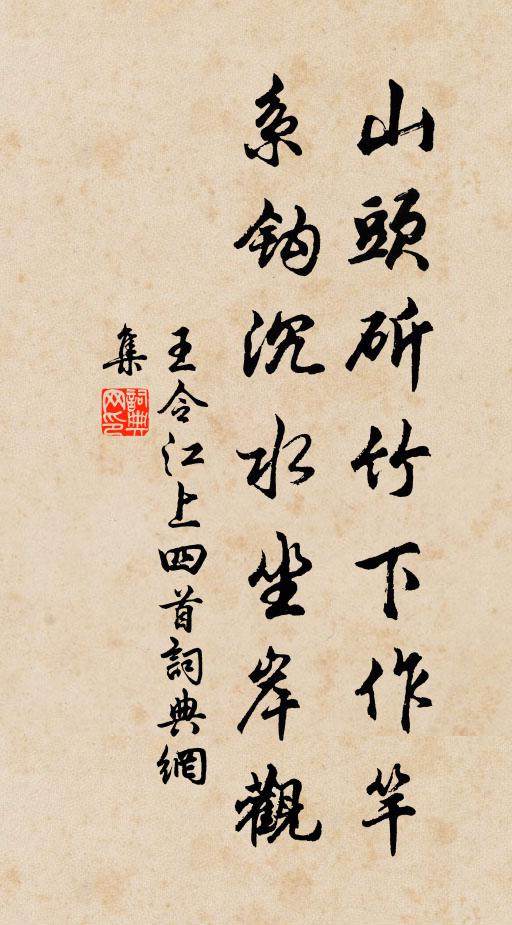 山頭斫竹下作竿
系鈎沉水坐岸觀
王令江上四首詞典網
集
詞典網印